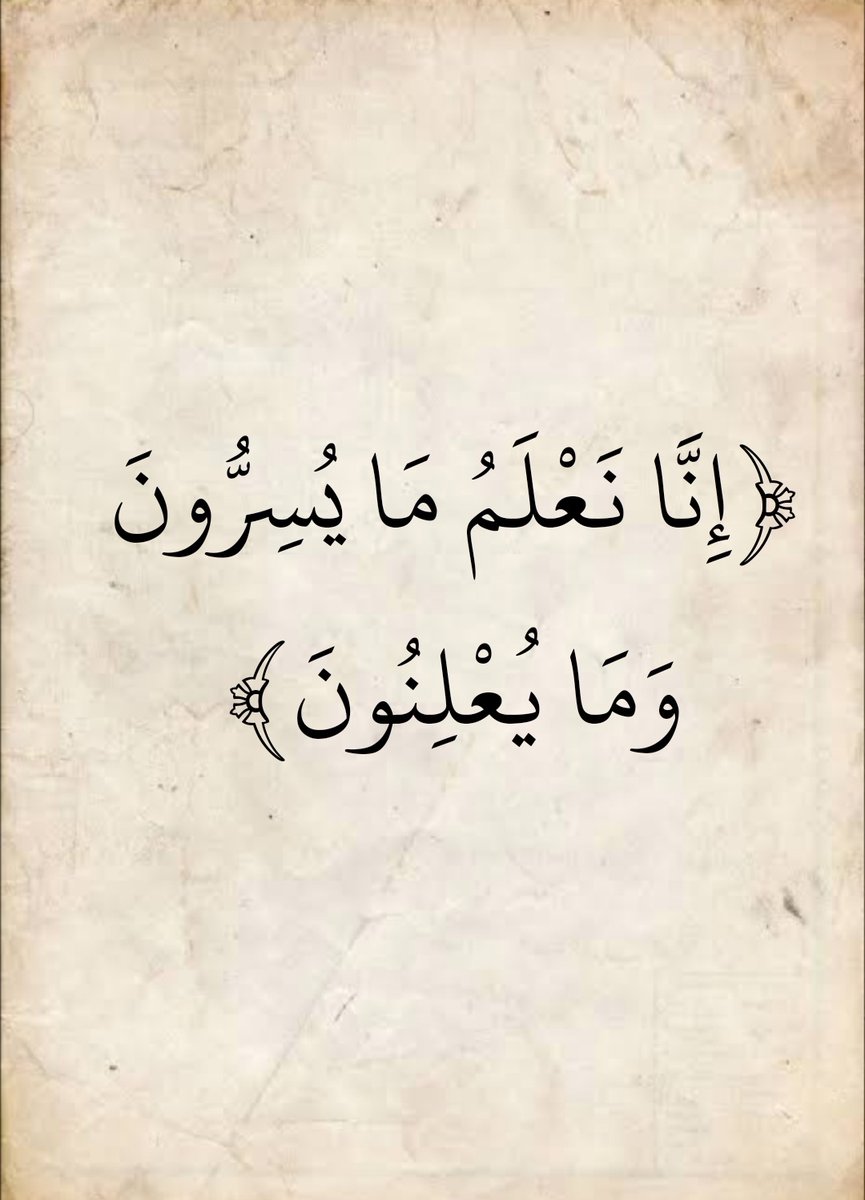 ﴿إِنَّا نَعْلَمُ مَا يُسِرُّونَ
وَمَا يُعْلِنُونَ﴾